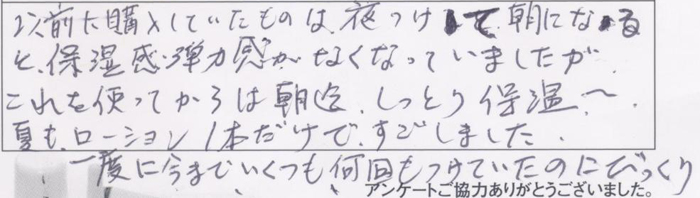 以前に購入していたものは、夜つけて朝になる
と、保湿感・弾力感がなくなっていましたが
これを使ってからは朝迄、しっとり保湿〜
夏も、ローション1本だけで、すごしました。
一度に今までいくつも何回もつけていたのにびっくり
アンケートご協力ありがとうございました。